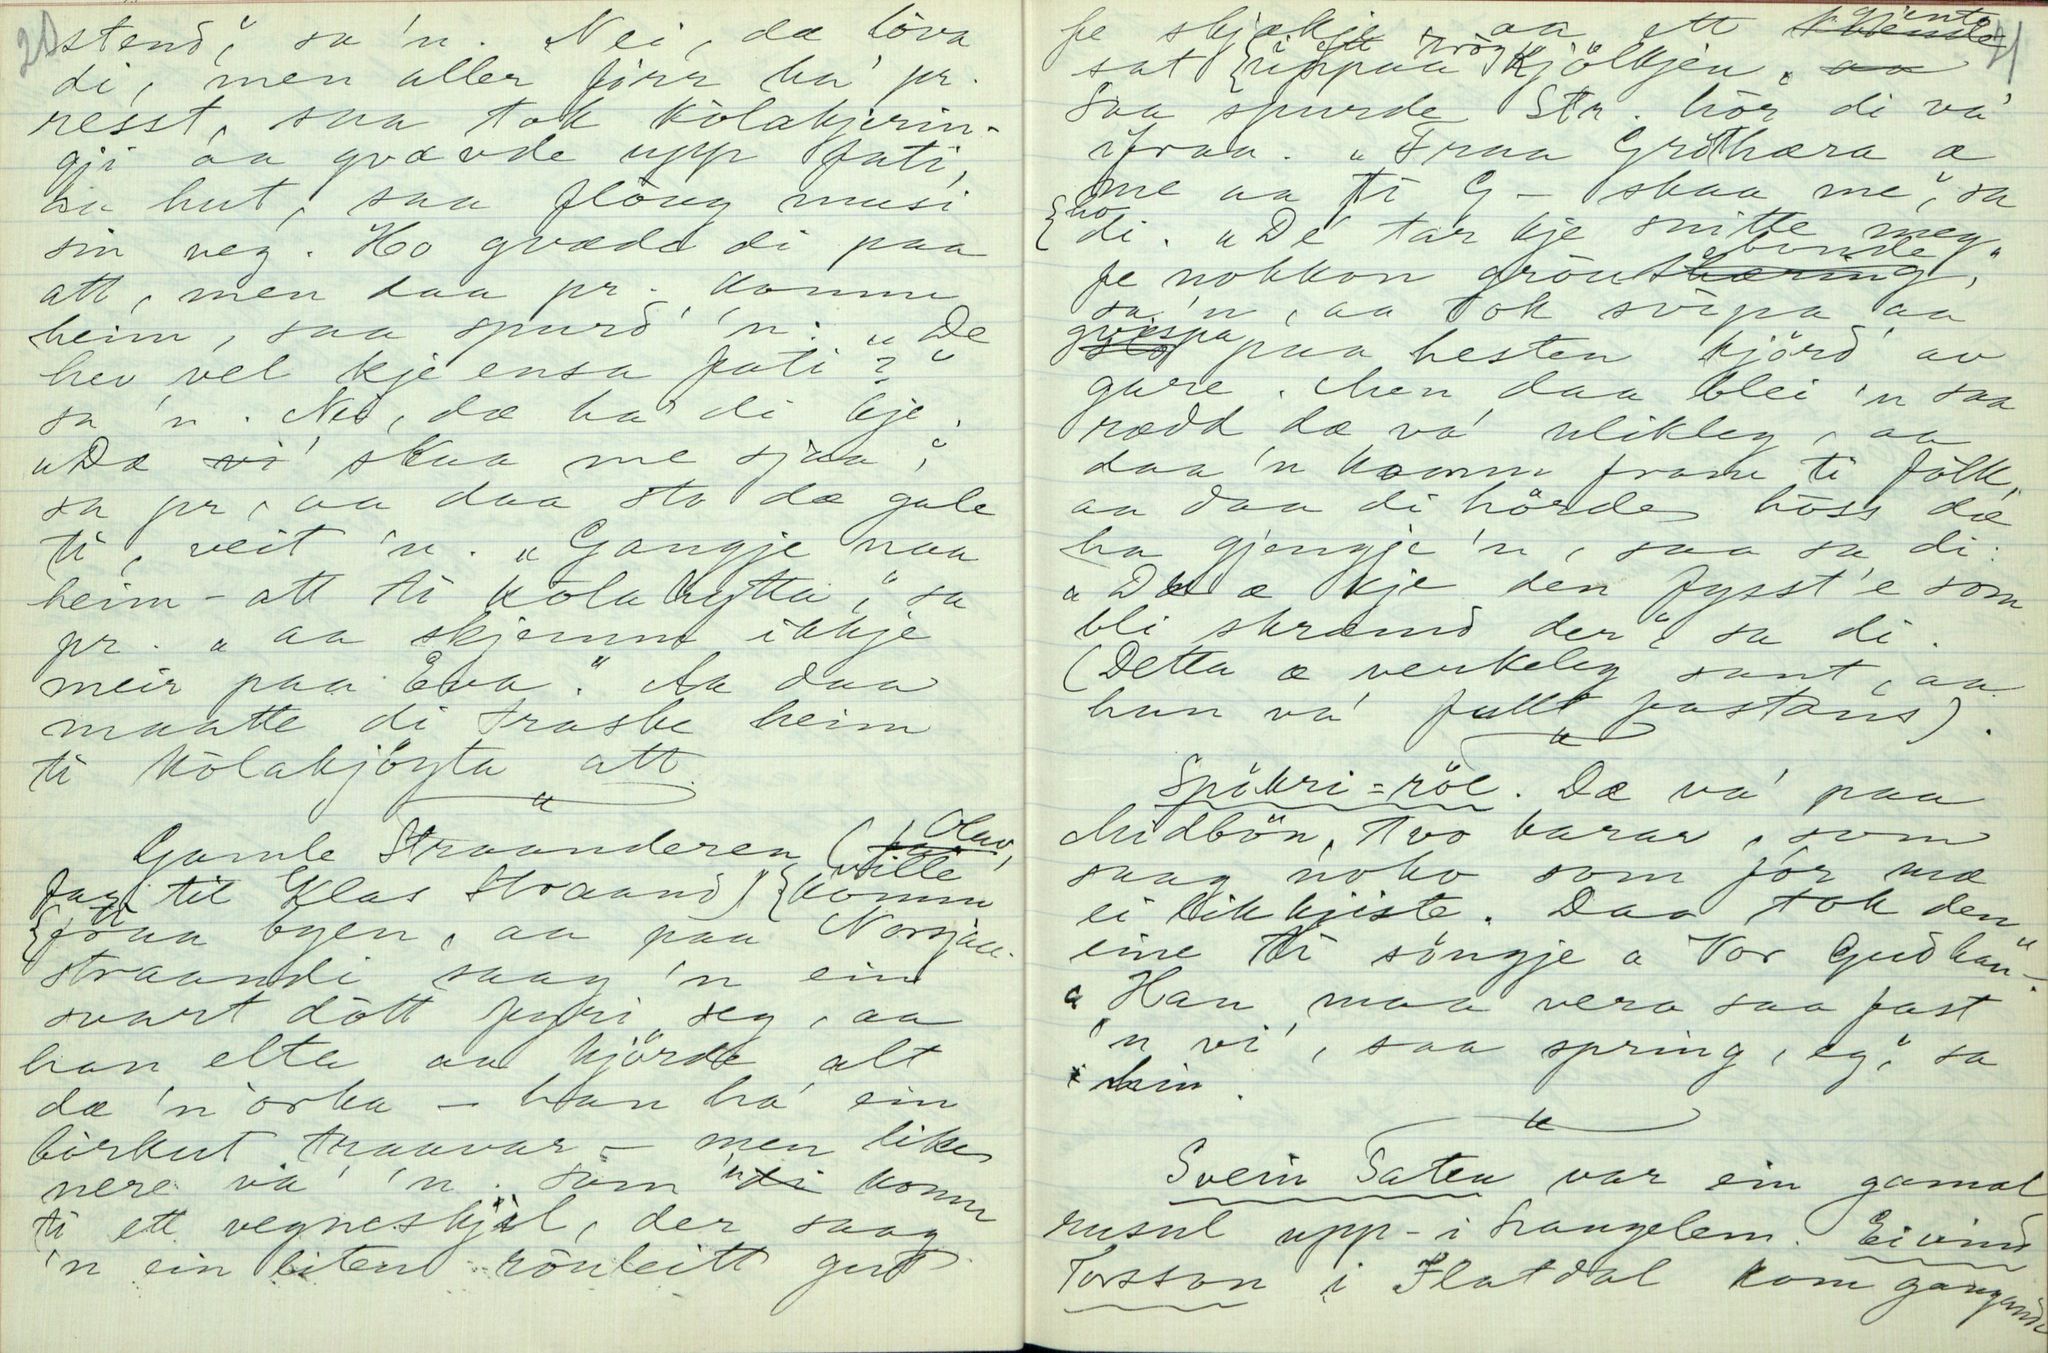 20
stend", sa 'n. Nei, dæ lova
di, men aller fórr ha' pr.
resst, saa tok kòlakjerin-
gji aa gvævde upp fati,
aa hut, saa flöug musi
sin veg. Ho gvædd di paa
att, men daa pr. komm
heim, saa spurd' 'n: "De
hev vel kje ensa fati?"
sa 'n. Nei, dæ ha' di kje.
"Dæ vi' skaa me sjaa",
sa pr, aa daa sto dæ gale
ti, veit 'n. "Gangje naa
heim-att ti kòlahytta", sa
pr. "aa skjemm ikkje
meir paa Eva." Aa daa
maatte di traska heim
ti kòlakjöyta att.
Gamle Straanderen (Olav,
far til Klas Straand) {ville komm
{fraa ti byen, aa paa Norsjaa-
straandi saag 'n ein
svart dòtt fyri seg, aa
han elta aa kjörde alt
dæ 'n orka – han ha' ein
börkut traavar – men like
nere va' 'n. Som 'n di komm
ti ett vegneskjil, der saag
'n ein liten rönleitt gut
41
fe skjækje, aa ett kvende gjente
sat {i ett trög uppaa kjölkjen. aa
Saa spurde Str. hòr di va'
ifraa. "Fraa Gröthæra æ
me aa ti G – skaa me", sa
{ho di. "De tar kje snitte meg
fe nokkon gröuthæring bonde",
sa 'n, aa tok svipa aa
slo gvespa paa hesten kjörd' av
gare. Men daa blei 'n saa
rædd dæ va' ulikleg, aa
daa 'n komm fram ti fólk,
aa daa di hörde höss dæ
ha gjengje 'n, saa sa di:
"Du æ kje den fysst'e som
bli skræmd der", sa di.
(Detta æ verkeleg sant, aa
han va' fullt fastans).
Spökri=röl. Dæ va' paa
Midbön, tvo karar, som
saag noko som fór mæ
ei likkjiste. Daa tok den
eine ti söngje "Vor Gud han".
"Han maa vera saa fast
'n vi', saa spring, eg", sa
hin.
Svein Taten var ein gamal
rusul upp-i Langelem. Eivind
Torsson i Flatdal kom gangande